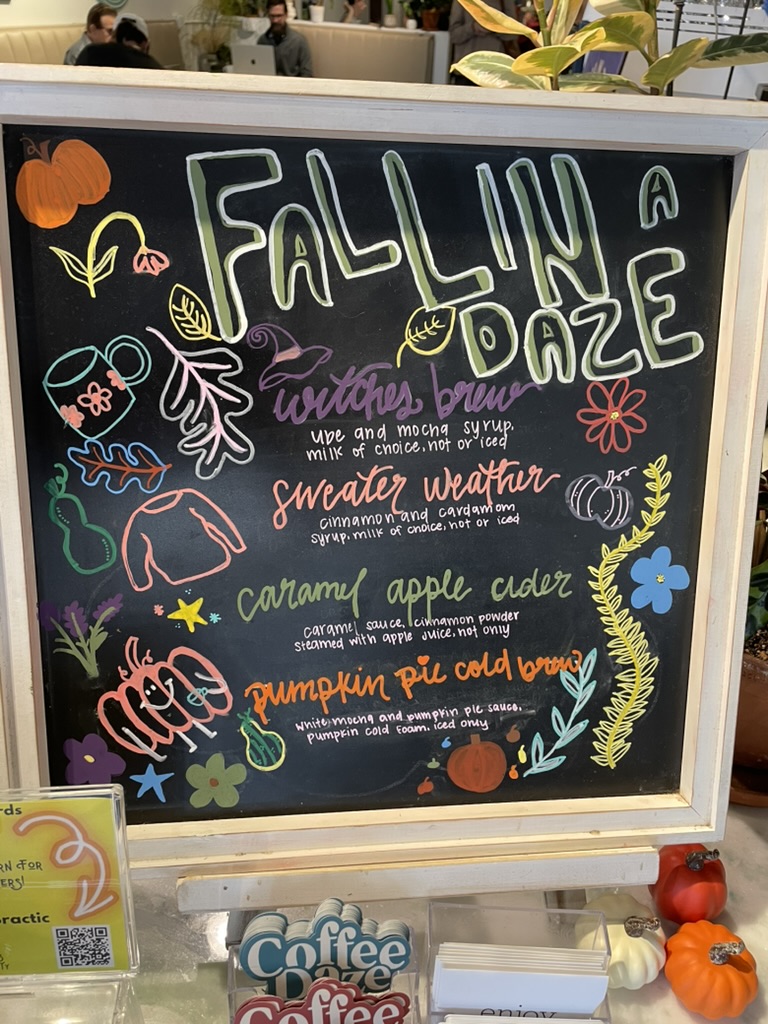 FALL IN A
DAZE
witches brew
ube and mocha syrup,
milk of choice, hot or iced
sweater weather
cinnamon and cardamom
syrup, milk of choice, hot or iced
caramel apple cider
caramel sauce, cinnamon powder
steamed with apple juice, hot only
pumpkin pie cold brew
white mocha and pumpkin pie sauce,
pumpkin cold foam, iced only
Coffee
Daze
Coffee
enjoy